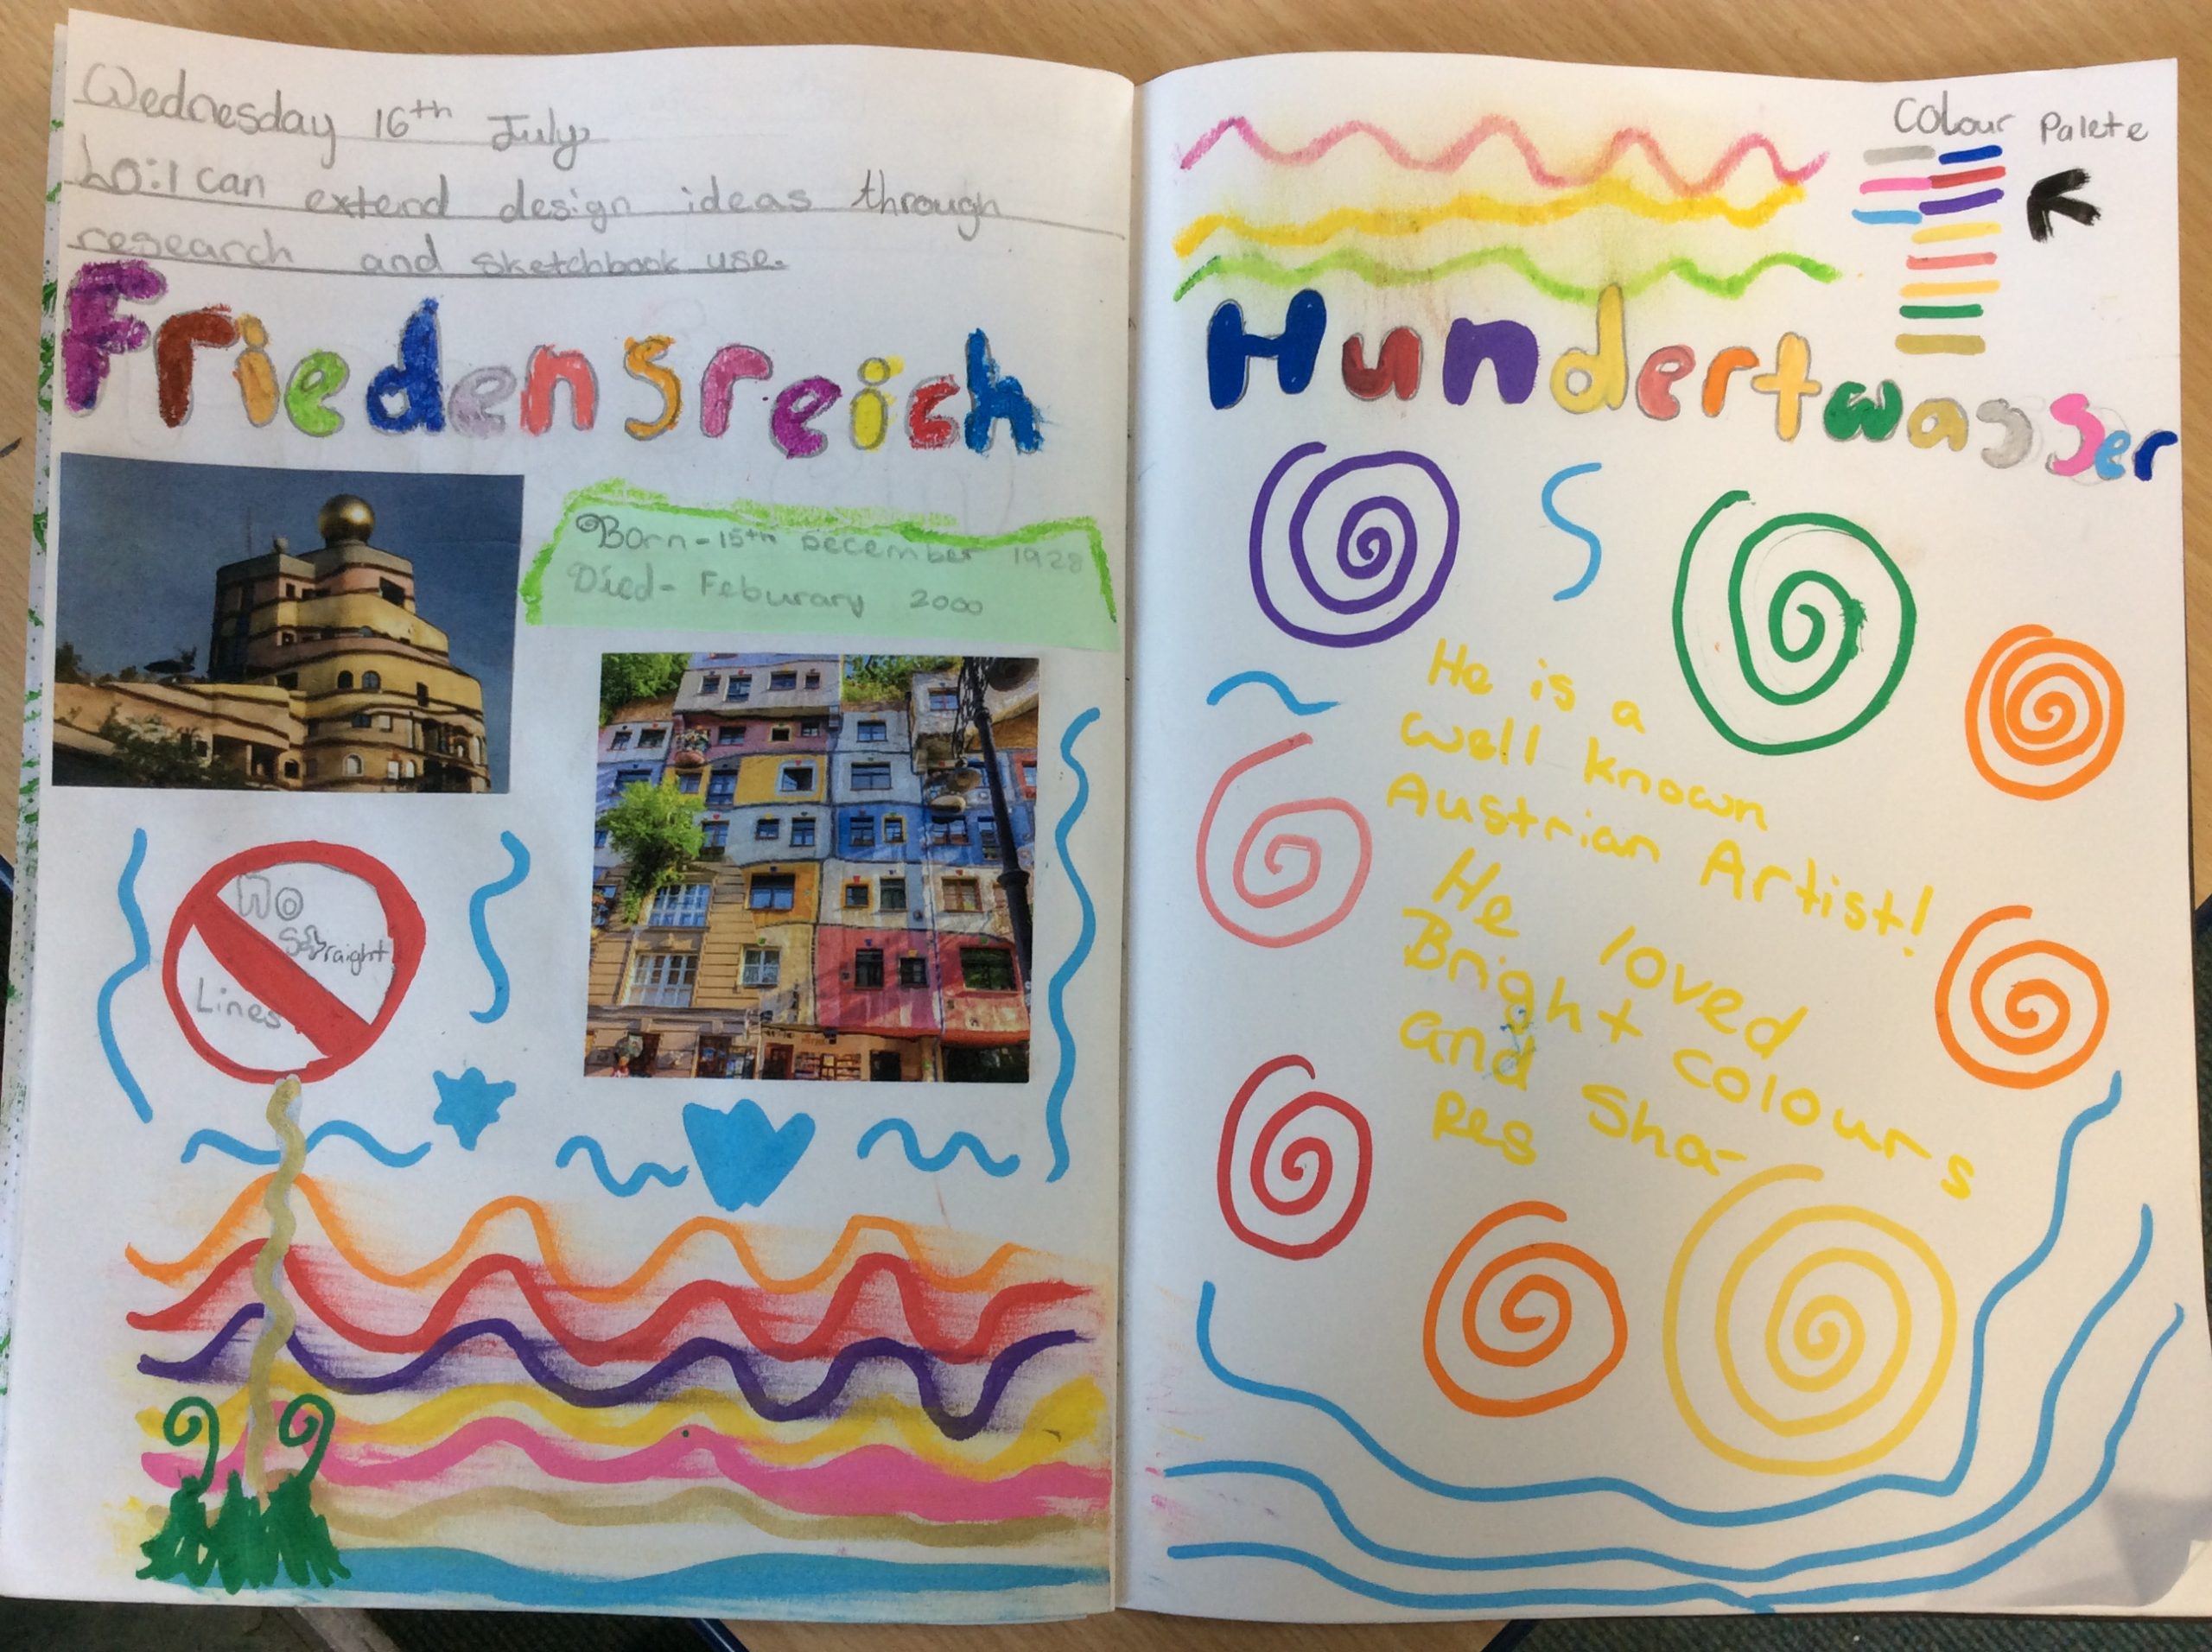 Wednesday 16th July
Lo: I can extend design ideas through
research and sketchbook use.
Friedensreich
Born - 15th December 1928
Died - Feburary 2000
No
Straight
Lines
Colour Palete
Hundertwasser
He is a
well known
Austrian Artist!
He loved
Bright colours
and Sha-
Pes